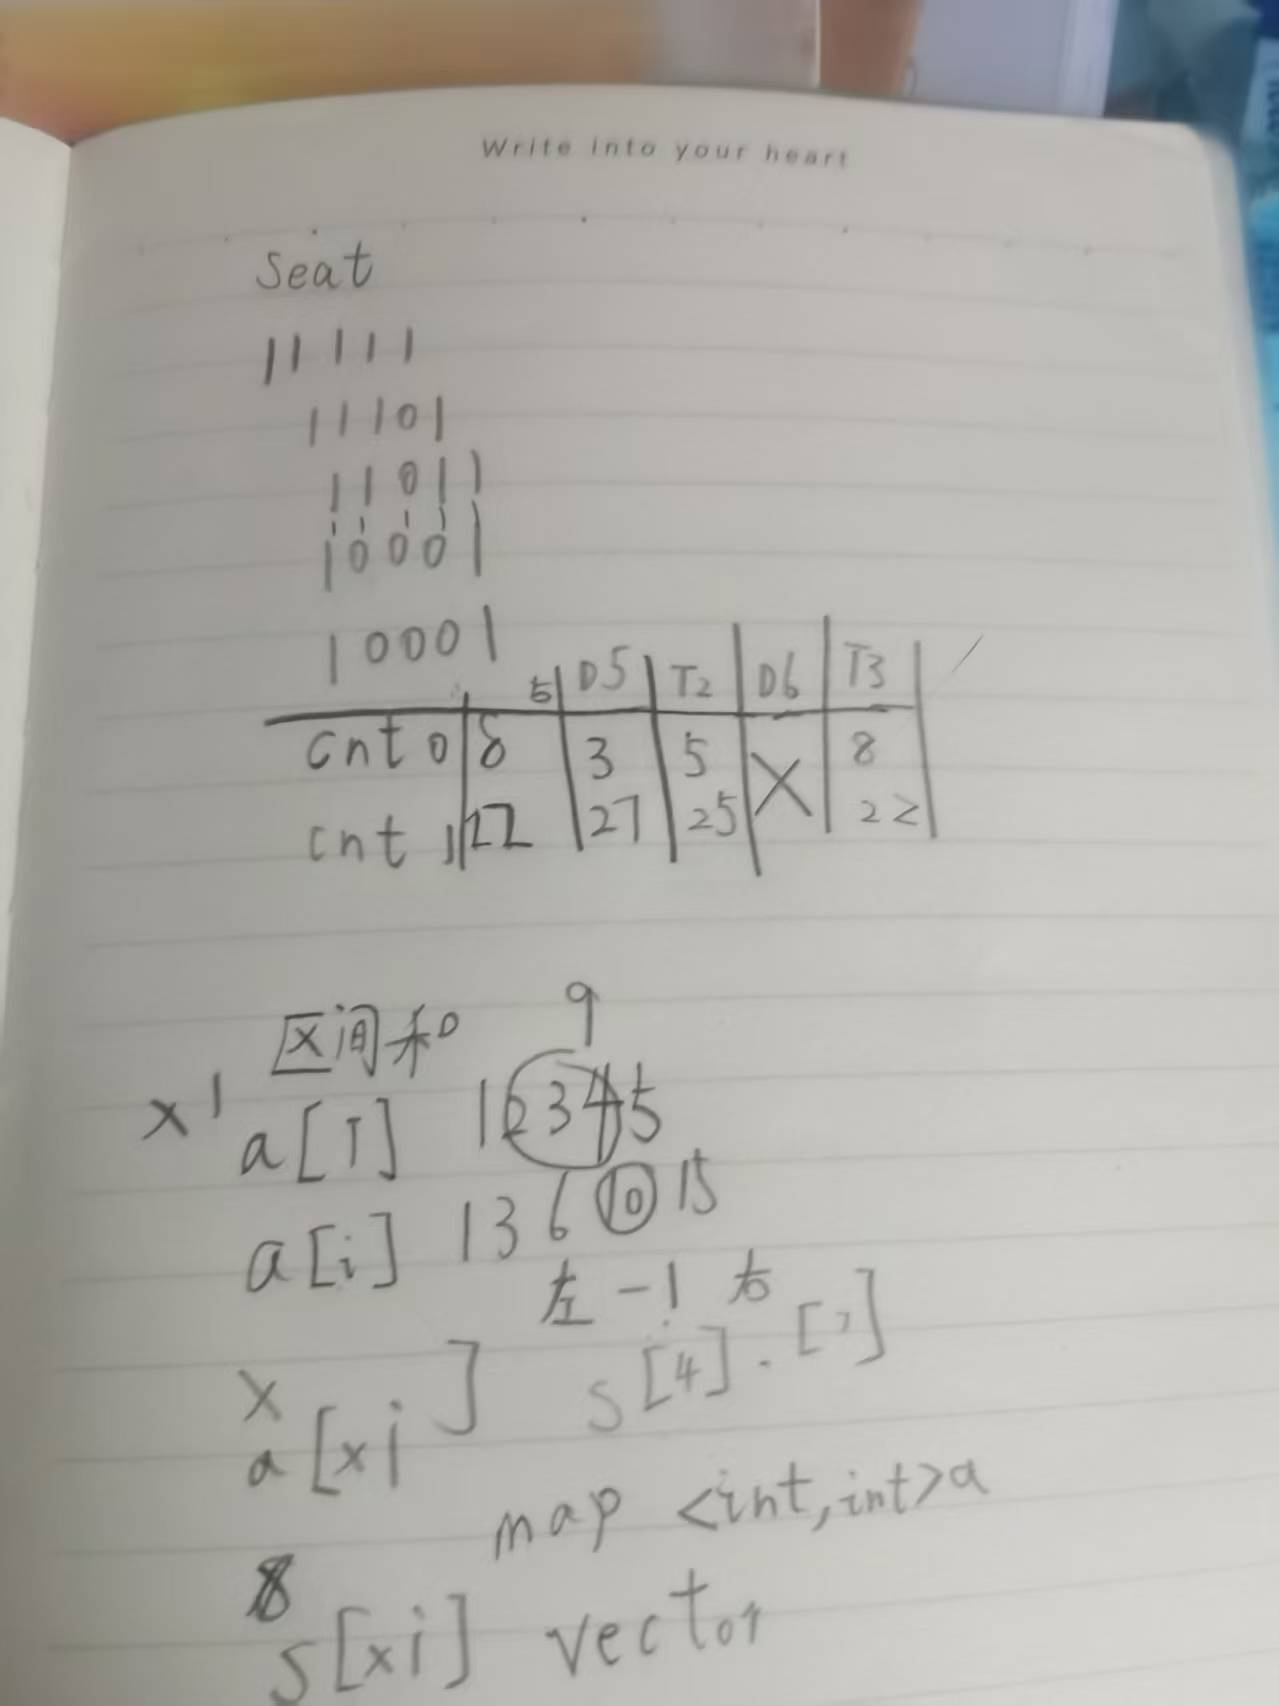 Write into your heart
Seat
11111
11101
11011
10001
10001
D5 T2 D6 T3
cnt 0 8 3 5 X 8
cnt 1 22 27 25 22
区间和 9
x 1
a[1] 1 2 3 4 5
a[i] 1 3 6 10 15
左 -1 右
x s[4] - [ ]
a[xi]
map <int,int>a
8
s[xi] vector